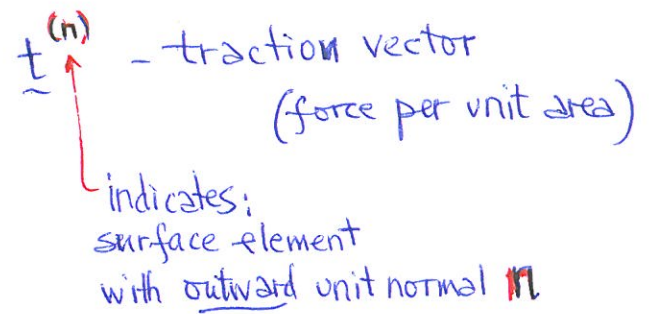 t^(n) - traction vector
(force per unit area)
indicates:
surface element
with outward unit normal n